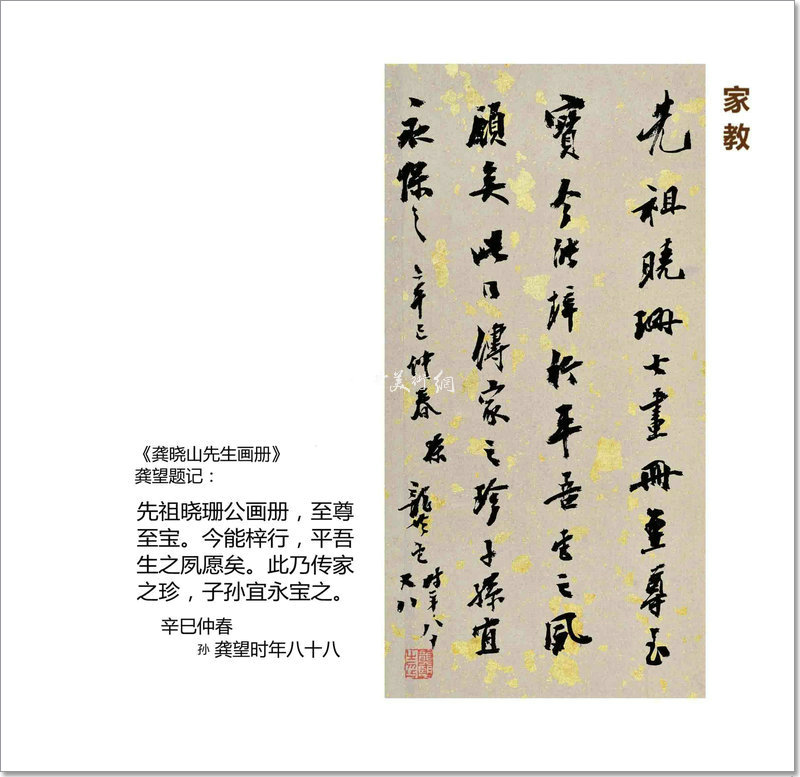 家教
先祖曉珊公畫冊至尊至
寶今能梓行平吾生之夙
願矣此乃傳家之珍子孫宜
永保之辛巳仲春孫龔望時年八十
又八
美術網
《龚晓山先生画册》
龚望题记：
先祖晓珊公画册，至尊
至宝。今能梓行，平吾
生之夙愿矣。此乃传家
之珍，子孙宜永宝之。
辛巳仲春
孙 龚望时年八十八